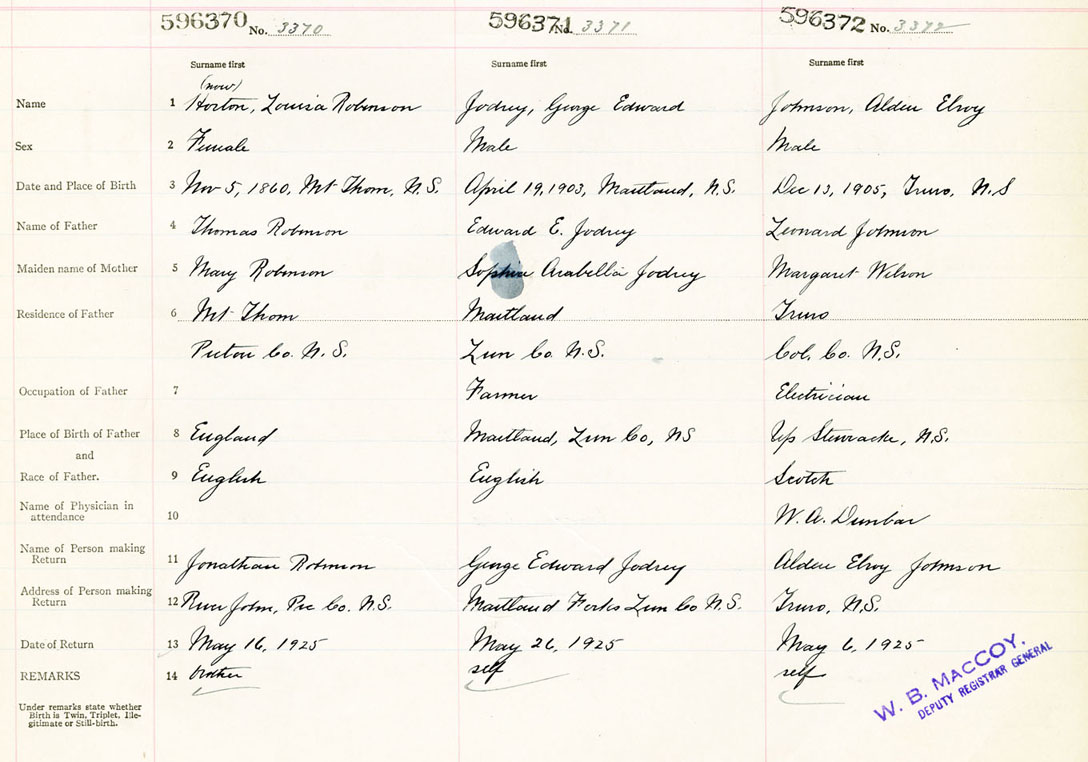 596370 No. 3370 596371 No. 3371 596372 No. 3372
Surname first Surname first Surname first
(now)
Name 1 Horton, Louisa Robinson Jodrey, George Edward Johnson, Alden Elroy
Sex 2 Female Male Male
Date and Place of Birth 3 Nov 5, 1860, Mt Thom, N.S. April 19, 1903, Maitland, N.S. Dec 13, 1905, Truro, N.S
Name of Father 4 Thomas Robinson Edward E. Jodrey Leonard Johnson
Maiden name of Mother 5 Mary Robinson Sophia Arabella Jodrey Margaret Wilson
Residence of Father 6 Mt Thom Maitland Truro
Pictou Co. N.S. Lun Co. N.S. Col. Co. N.S.
Occupation of Father 7 Farmer Electrician
Place of Birth of Father 8 England Maitland, Lun Co, NS Up Stewiacke, N.S.
and
Race of Father. 9 English English Scotch
Name of Physician in
attendance 10 W. A. Dunbar
Name of Person making
Return 11 Jonathan Robinson George Edward Jodrey Alden Elroy Johnson
Address of Person making
Return 12 River John, Pic Co. N.S. Maitland Forks Lun Co N.S. Truro, N.S.
Date of Return 13 May 16, 1925 May 26, 1925 May 6, 1925
REMARKS 14 brother self self
W. B. MACCOY.
DEPUTY REGISTRAR GENERAL
Under remarks state whether
Birth is Twin, Triplet, Ille-
gitimate or Still-birth.